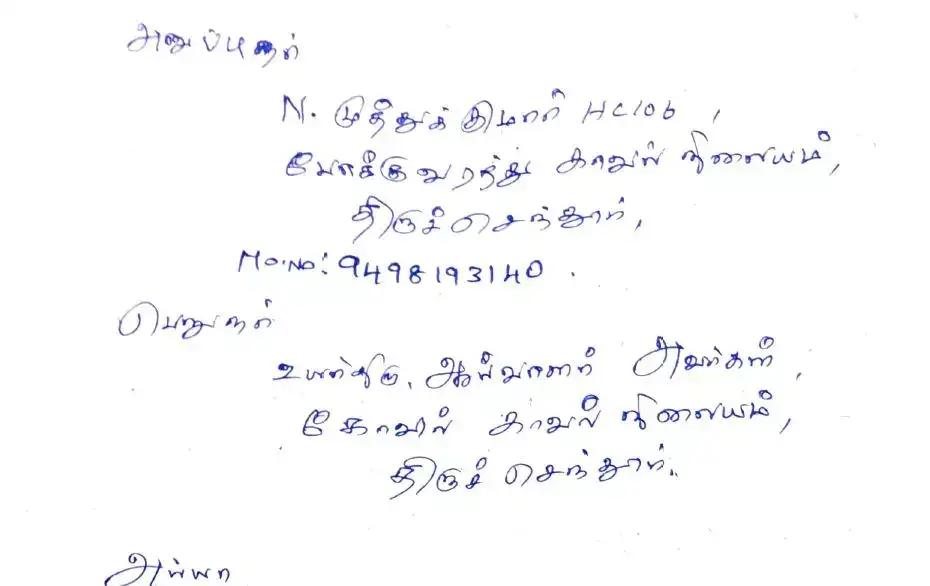 அனுப்புநர்
N. முத்துக்குமார் HC106,
போக்குவரத்து காவல் நிலையம்,
திருச்செந்தூர்,
Mo.No: 9498193140.
பெறுநர்
உயர்திரு. ஆய்வாளர் அவர்கள்,
கோவில் காவல் நிலையம்,
திருச்செந்தூர்.
அய்யா